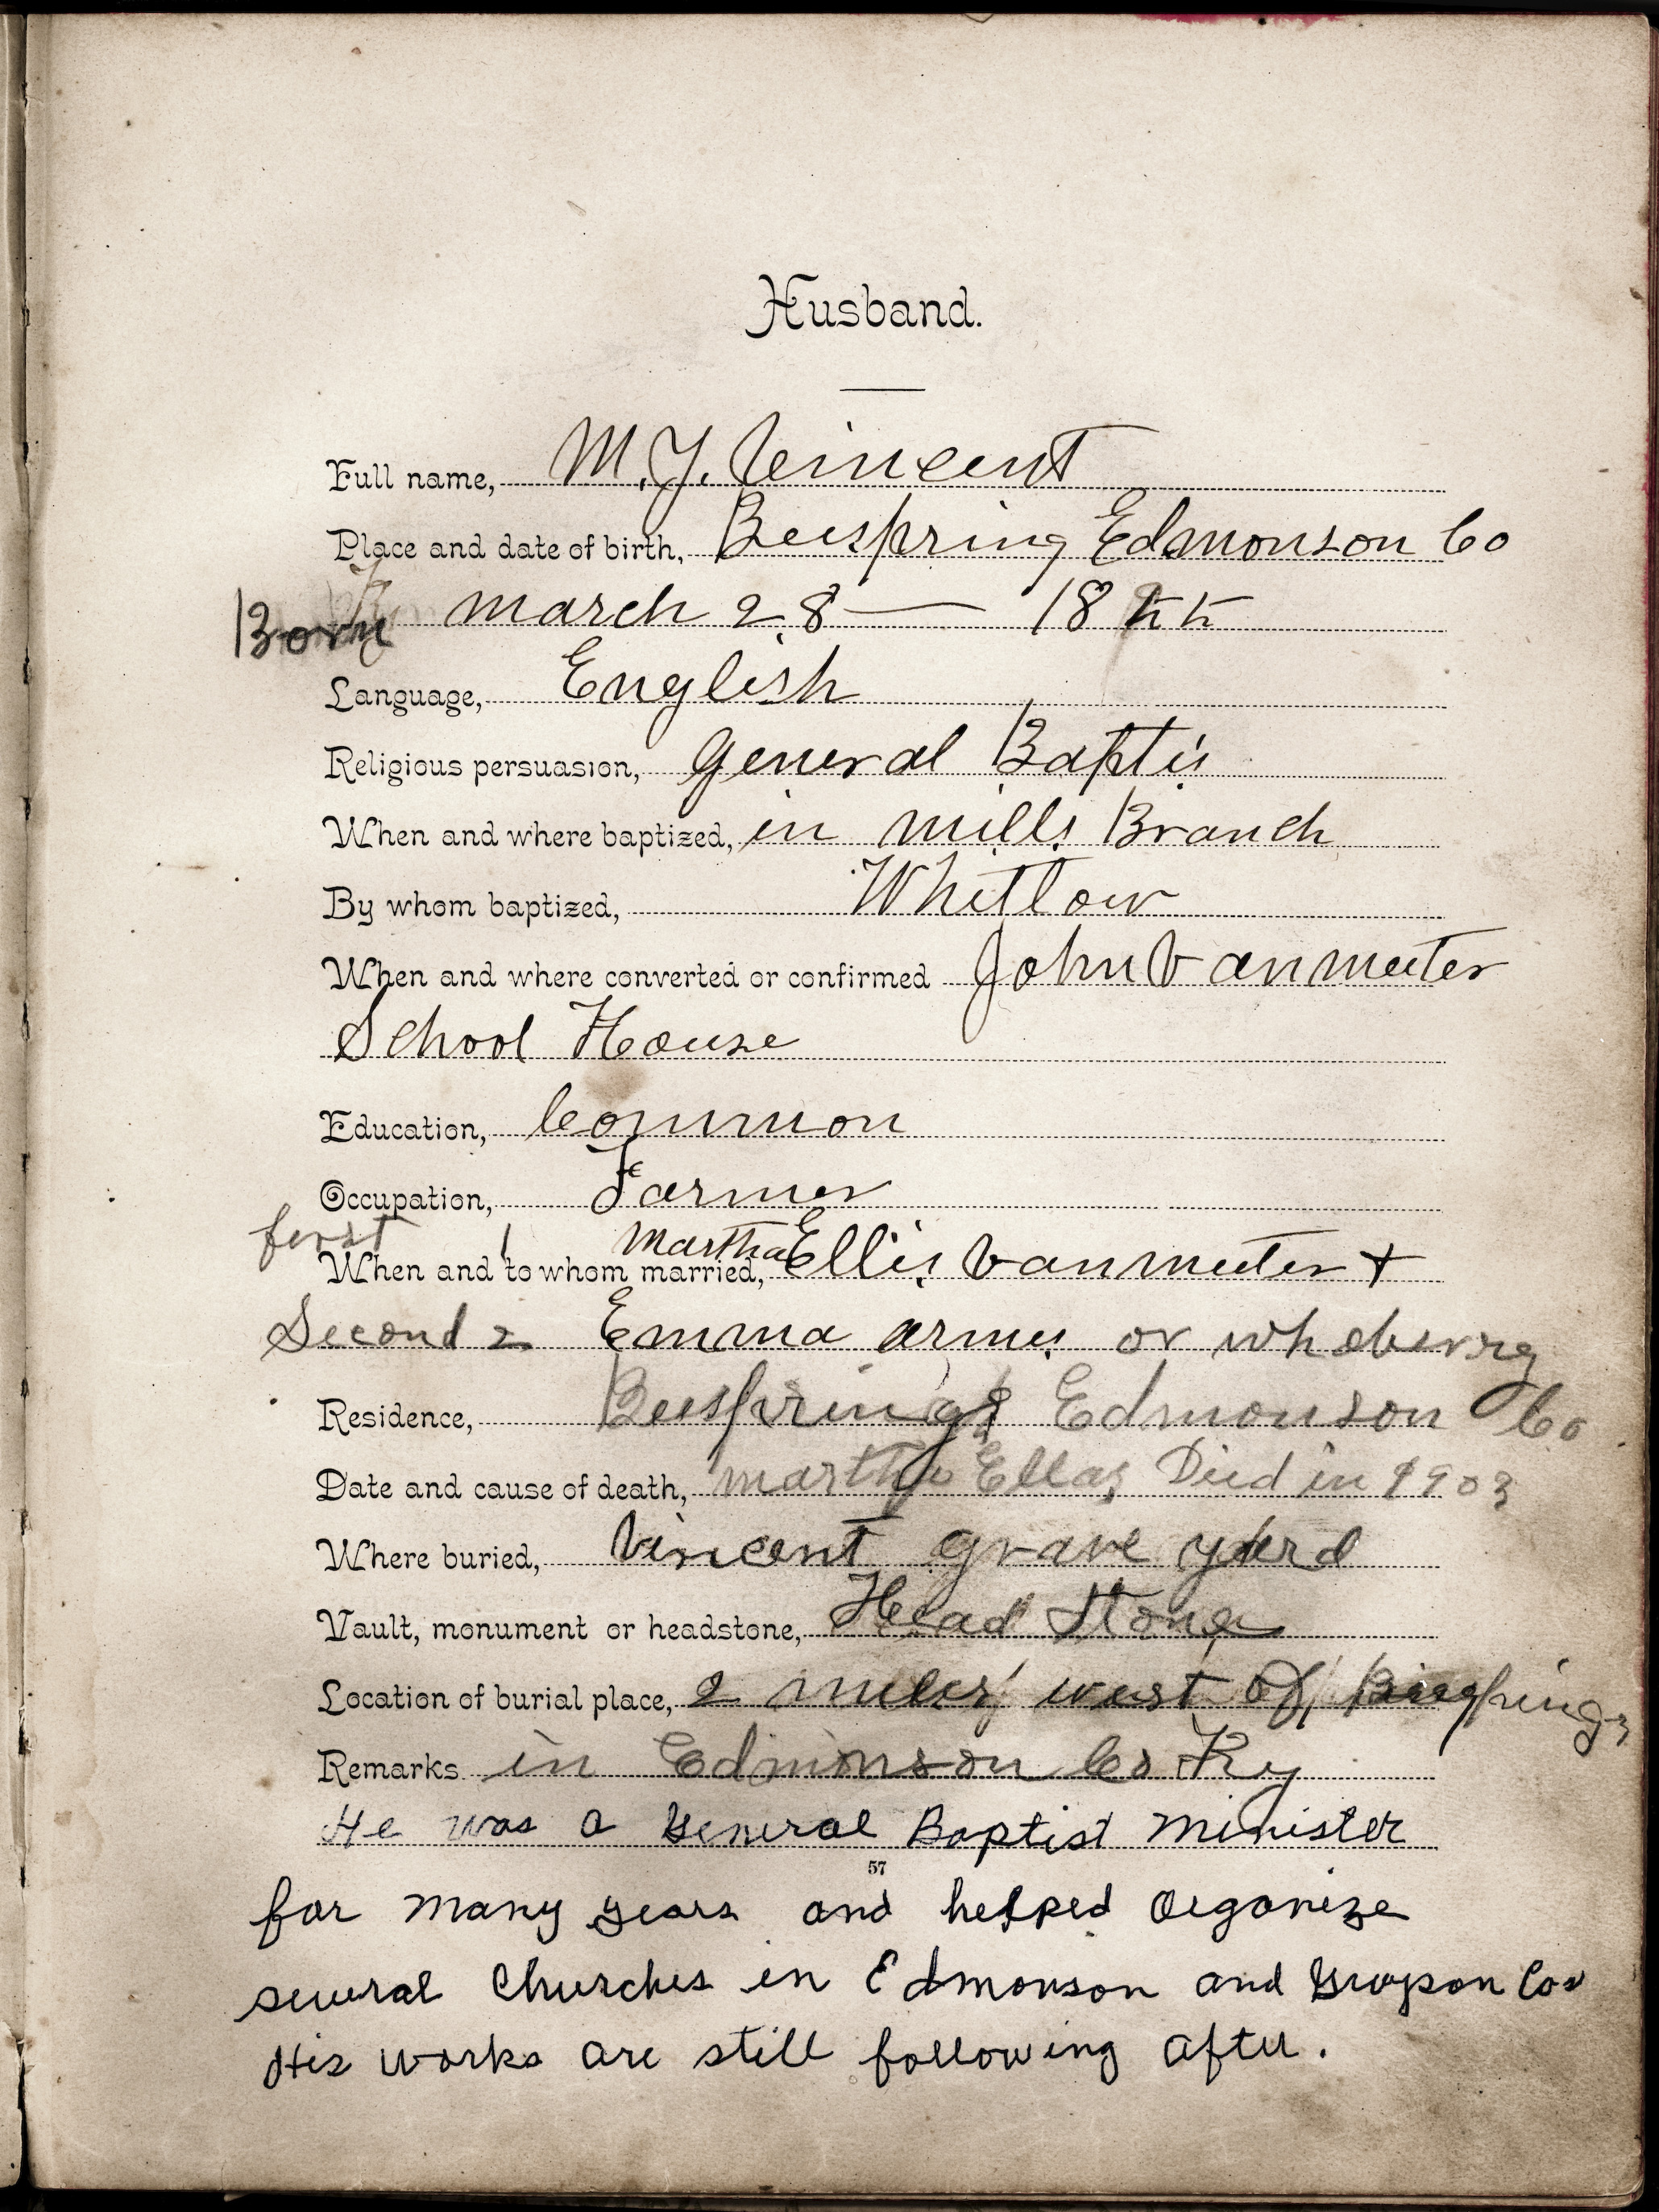 Husband.
Full name, M. J. Vincent
Place and date of birth, Beespring Edmonson Co
Born march 28 — 1855
Language, English
Religious persuasion, General Baptis
When and where baptized, in mills Branch
By whom baptized, Whitlow
When and where converted or confirmed John Vanmeter
School House
Education, Common
Occupation, Farmer
first 1 martha
When and to whom married, Ellis Vanmeter +
Second 2 Emma armes or
Residence, Beesprings Edmonson Co
Date and cause of death, martha Ellas Died in 1903
Where buried, Vincent grave yard
Vault, monument or headstone, Head Stone
Location of burial place, 2 miles west of
Remarks. in Edmonson Co Ky
He was a General Baptist Minister
57
for many years and helped Organize
several Churches in Edmonson and Grayson Cos
His works are still following after.